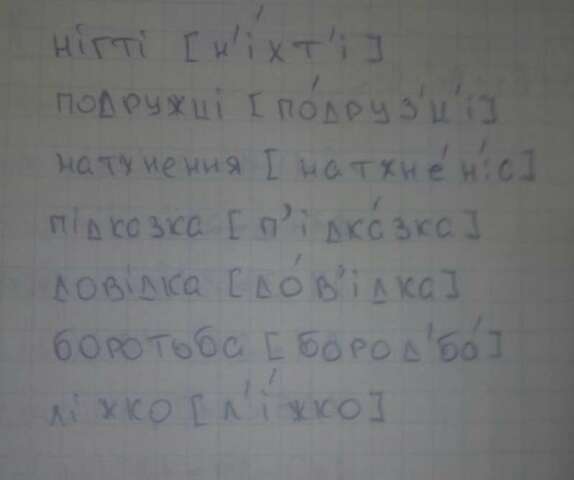 нігті [н'і́хт'і]
подружці [по́друз'ц'і]
натхнення [натхне́н':а]
підказка [п'ідка́зка]
довідка [до́в'ідка]
боротьба [бород'ба́]
ліжко [л'і́жко]